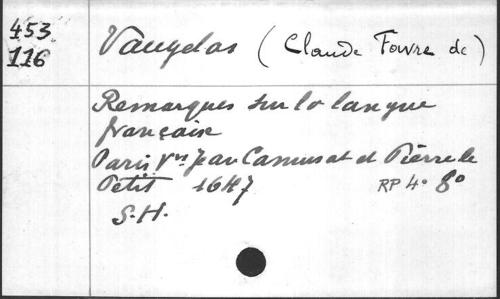 453
116
Vaugelas (Claude Favre de)
Remarques sur la langue
française
Paris, Vve Jean Camusat et Pierre le
Petit 1647 RP 4° 8°
S.H.